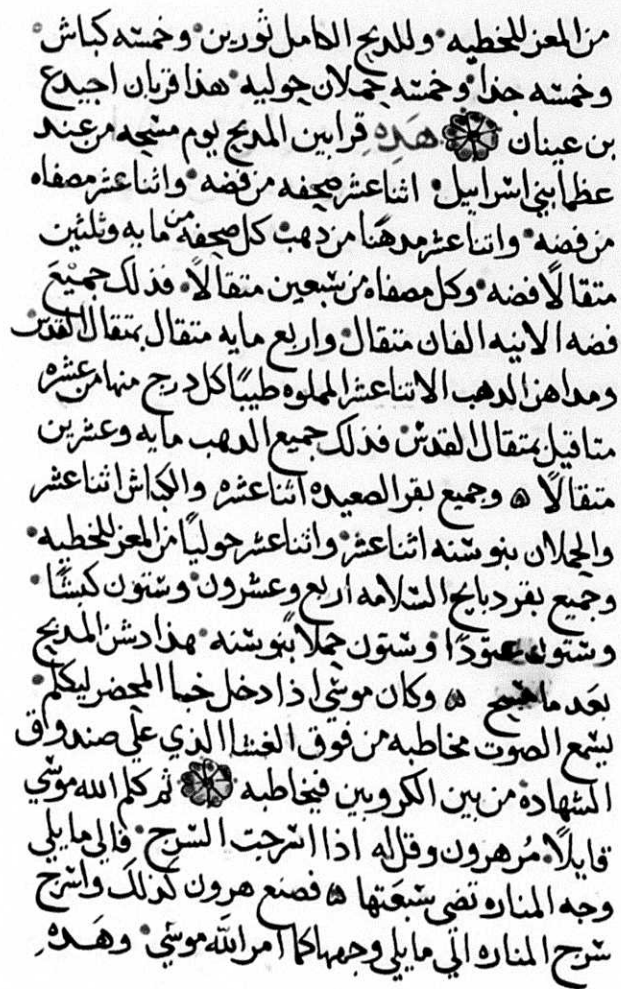 من المعز للخطيه ۰ وللدبح الكامل ثورين ۰ وخمسه كباش ۰
وخمسه جدا ۰ وخمسه حملان حوليه ۰ هدا قربان اجيدع
بن عينان هَدِهِ قرابين المدبح يوم مسحه من عند
عظما بني اسراييل ۰ اثنا عشر صحفه من فضه ۰ واثنا عشر مصفاه
من فضه ۰ واثنا عشر مدهنا من دهب ۰ كل صحفه من مايه وثلثين
متقالاً فضه ۰ وكل مصفاه من سبعين متقالاً ۰ فذلك جميع
فضه الانيه الفان متقال ۰ واربع مايه متقال بمتقال القدس
ومداهن الدهب الاثنا عشر المملوه طيبًا كل درج منها من عشره
متاقيل بمتقال القدس ۰ فذلك جميع الدهب مايه وعشرين
متقالاً ۵ وجميع بقر الصعيده اثنا عشره والكباش اثنا عشر
والحملان بنو سنه اثنا عشر ۰ واثنا عشر حوليًا من المعز للخطيه ۰
وجميع بقر دبايح السلامه اربع وعشرون ۰ وستون كبشًا ۰
وستون عتودًا ۰ وستون حملاً بنو سنه ۰ هدا دشن المدبح
بعَد ما مسح ۵ وكان موسي اذا دخل خبا المحضر ليكلم ۰
يسمع الصوت مخاطبه من فوق الغشا الذي علي صندوق
الشهادة من بين الكروبين فيخاطبه ثم كلم الله موسي
قايلاً ۰ مُر هرون وقل له اذا اسرجت السرج ۰ فالي ما يلي
وجه المناره تضي سبعَتها ۵ فصنع هرون كدلك واسرج
سرج المناره الي ما يلي وجهها كما امر الله موسي ۰ وهَدهِ